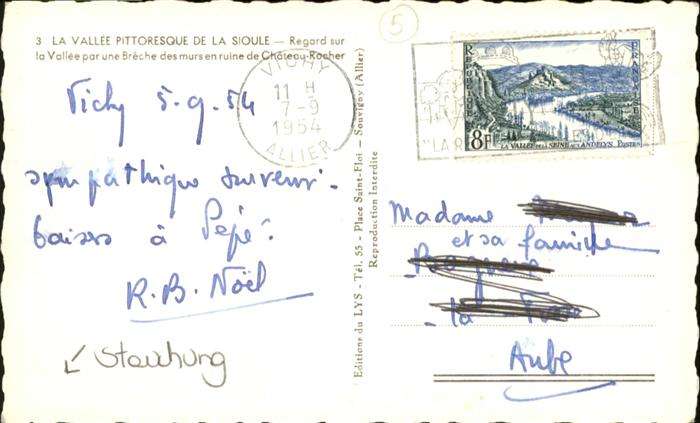 5
3 LA VALLÉE PITTORESQUE DE LA SIOULE — Regard sur
la Vallée par une Brèche des murs en ruine de Château-Rocher
VICHY
11 H
7-9
1954
ALLIER
RÉPUBLIQUE
FRANÇAISE
8F
LA VALLÉE DE LA SEINE AUX ANDELYS
POSTES
Vichy 5.9.54
sympathique souvenir.
baisers à Pépé.
R.B. Noël
Stauchung
Editions du LYS - Tél. 55 - Place Saint-Floi - Souvigny (Allier)
Reproduction Interdite
Madame
et sa famille
la
Aube